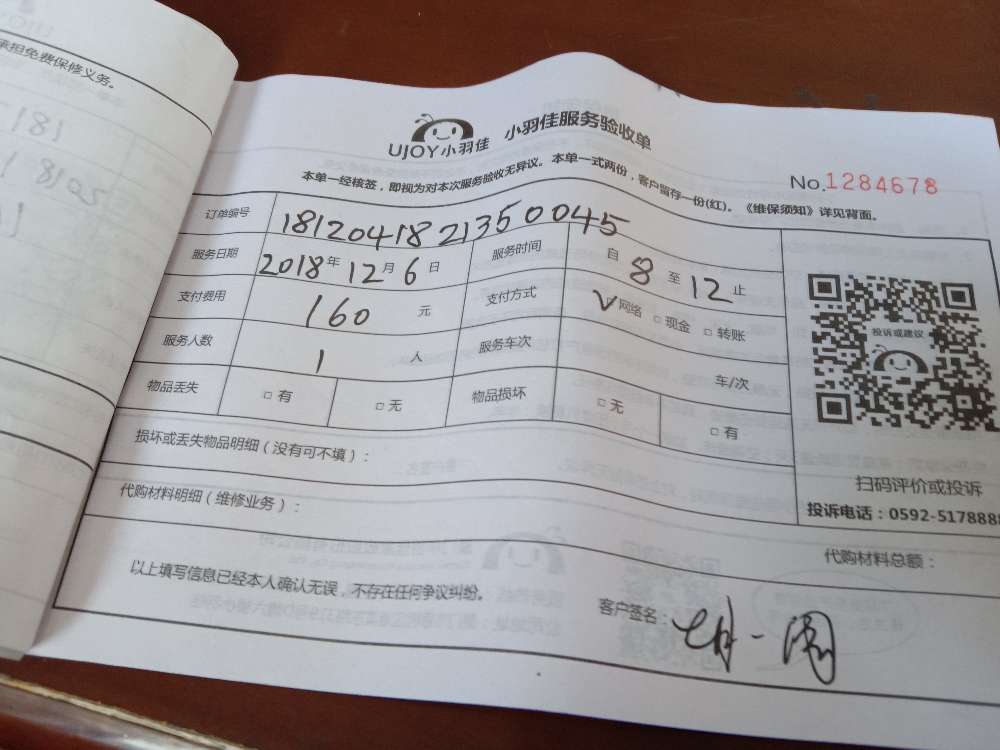 承担免费保修义务。
181
UJOY小羽佳 小羽佳服务验收单
本单一经核签，即视为对本次服务验收无异议。本单一式两份，客户留存一份(红)。《维保须知》详见背面。
No.1284678
订单编号 1812041821350045
服务日期 2018年12月6日 服务时间 自8至12止
支付费用 160元 支付方式 ✓网络 □现金 □转账
服务人数 1人 服务车次 车/次
物品丢失 □有 □无 物品损坏 □无 □有
投诉或建议
损坏或丢失物品明细（没有可不填）：
扫码评价或投诉
代购材料明细（维修业务）：
投诉电话：0592-5178888
代购材料总额：
以上填写信息已经本人确认无误，不存在任何争议纠纷。
客户签名：